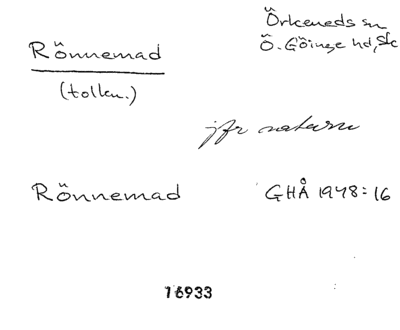 Örkeneds sn
Rönnemad
Ö. Göinge hd, Sk
(tolkn.)
jfr naturn
Rönnemad
GHÅ 1948:16
16933